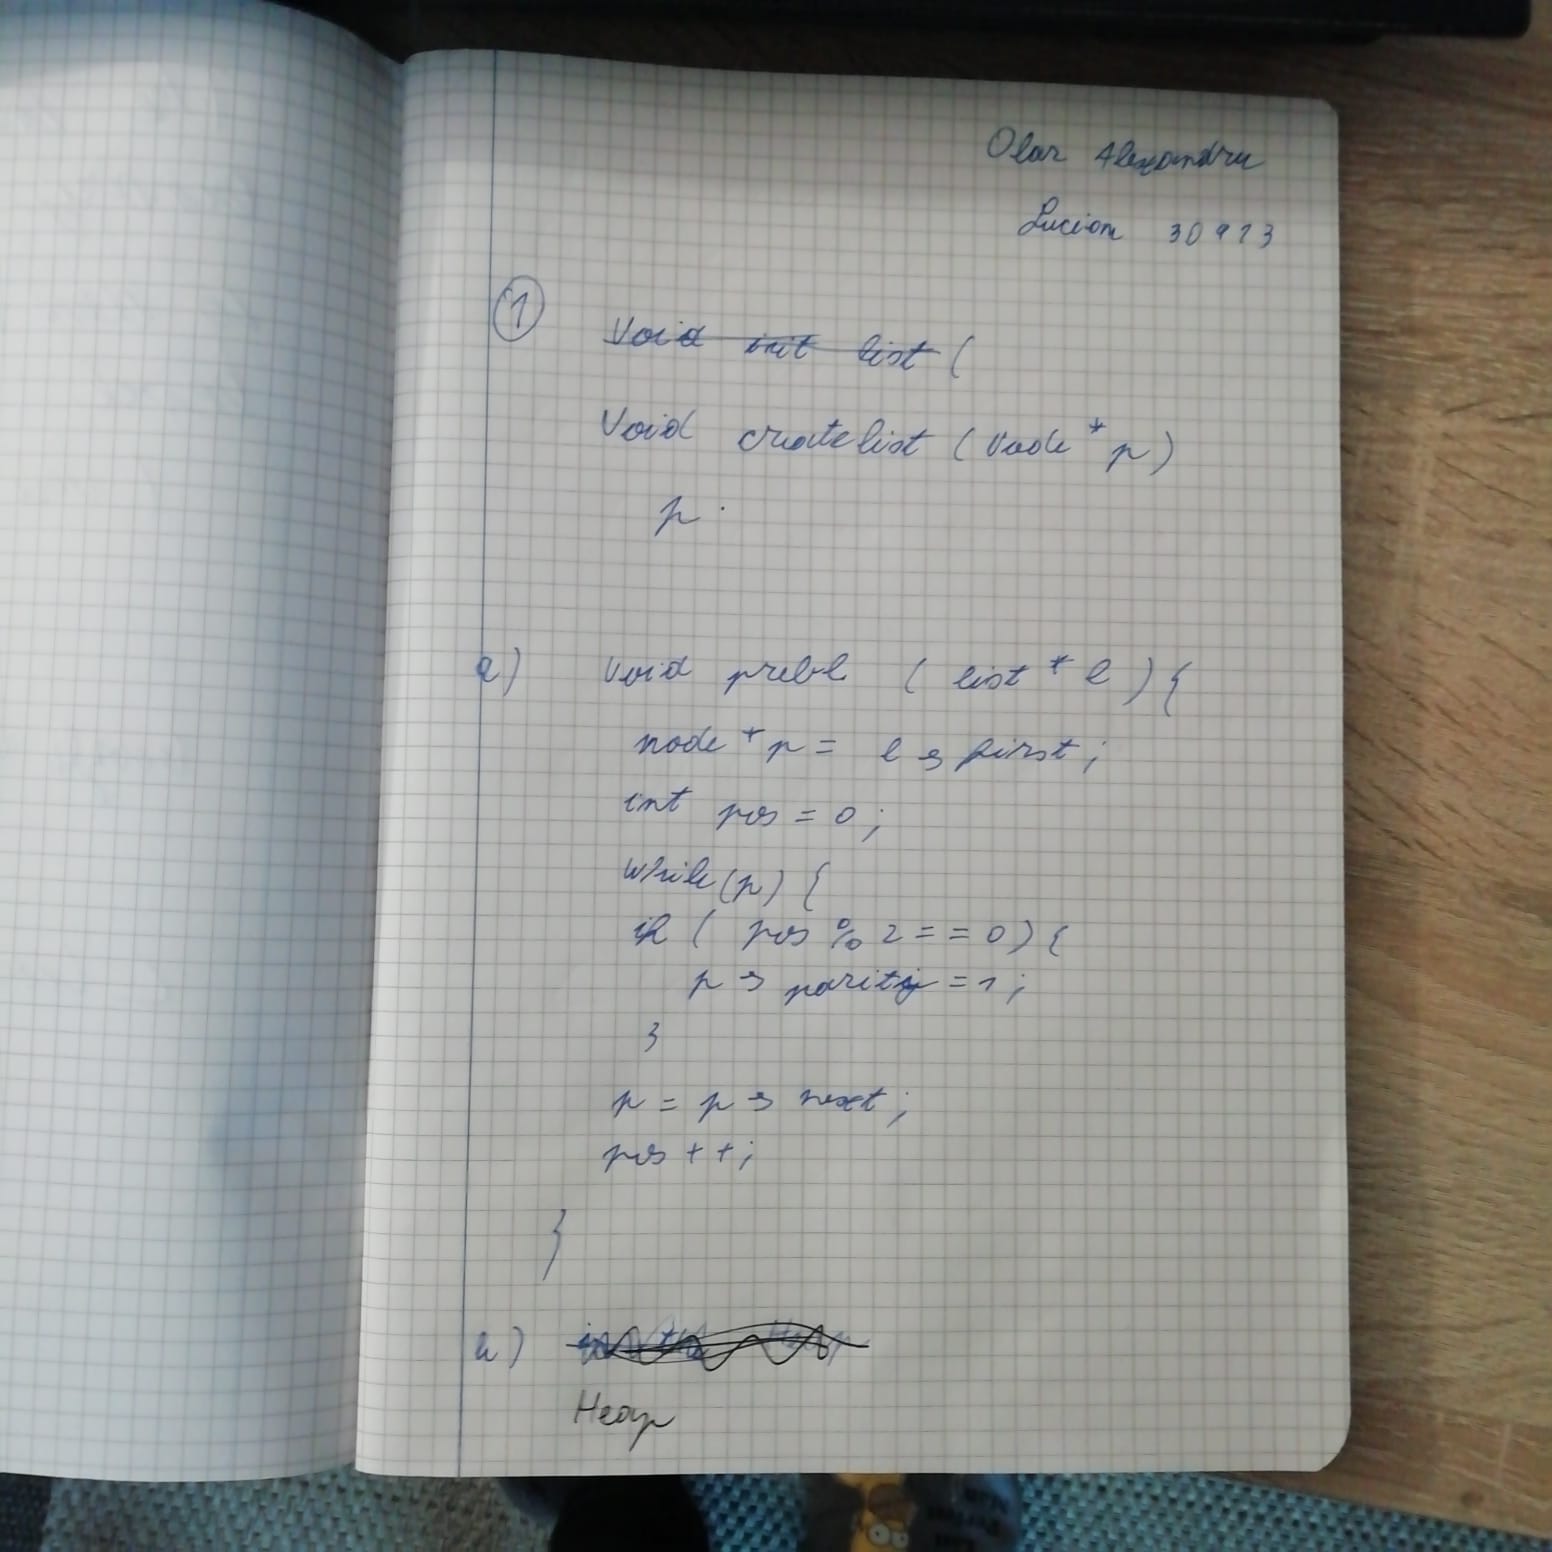 Olar Alexandru
Lucian 30913
1
Void init list (
Void createlist (node * p)
p.
a) void prebl ( list * l ) {
node * p = l → first ;
int pos = 0 ;
while (p) {
if ( pos % 2 = = 0 ) {
p → parity = 1 ;
}
p = p → next ;
pos + + ;
}
b)
Heap